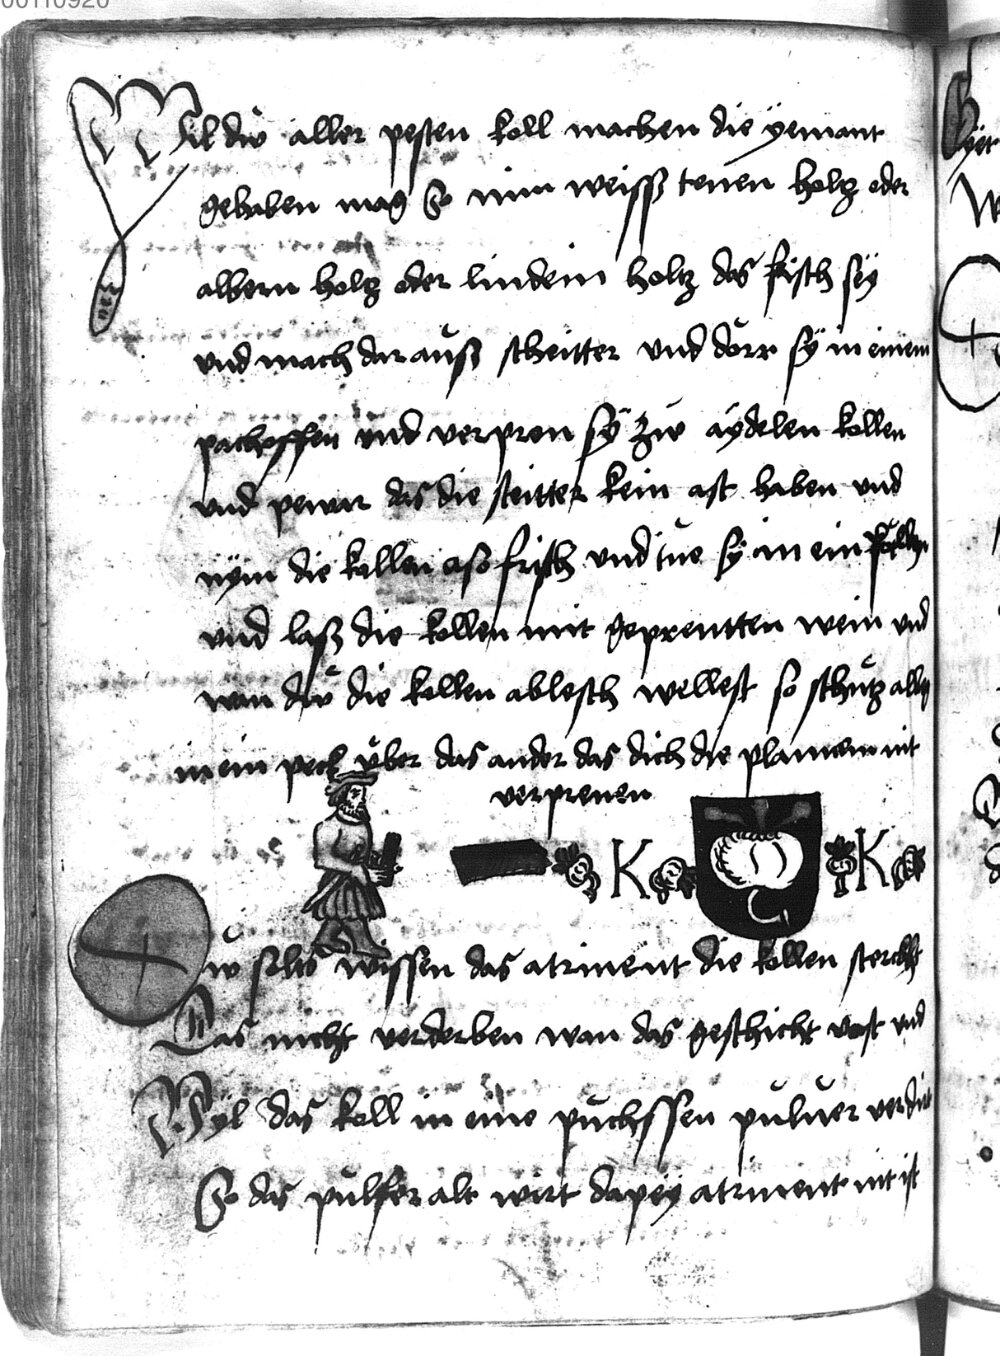 00110920
Wil dw aller pesten koll machen die yemant
gehaben mag So nim weisß tenen holtz oder
albern holtz oder lindein holtz das frisch sÿ
vnd mach dar auß scheitter vnd dörr sÿ in einem
pachoffen vnd verpren sÿ zw aÿdelen kollen
vnd pewar das die steitter kein ast haben vnd
nÿm die kollen also frisch vnd tue sÿ in ein
vnd lasß die kollen mit geprentten wein vnd
wan dw die kollen ablesch wellest so schütz
in ein peck über das ander das dich die plamem nit
verprenen
K K
Dw solts wissen das atriment die kollen sterckht
Das nicht verderben wan das geschicht vast vnd
Wÿl das koll in eine püchssen puluer
So das pulfer alt wirt dapeÿ atriment nit ist